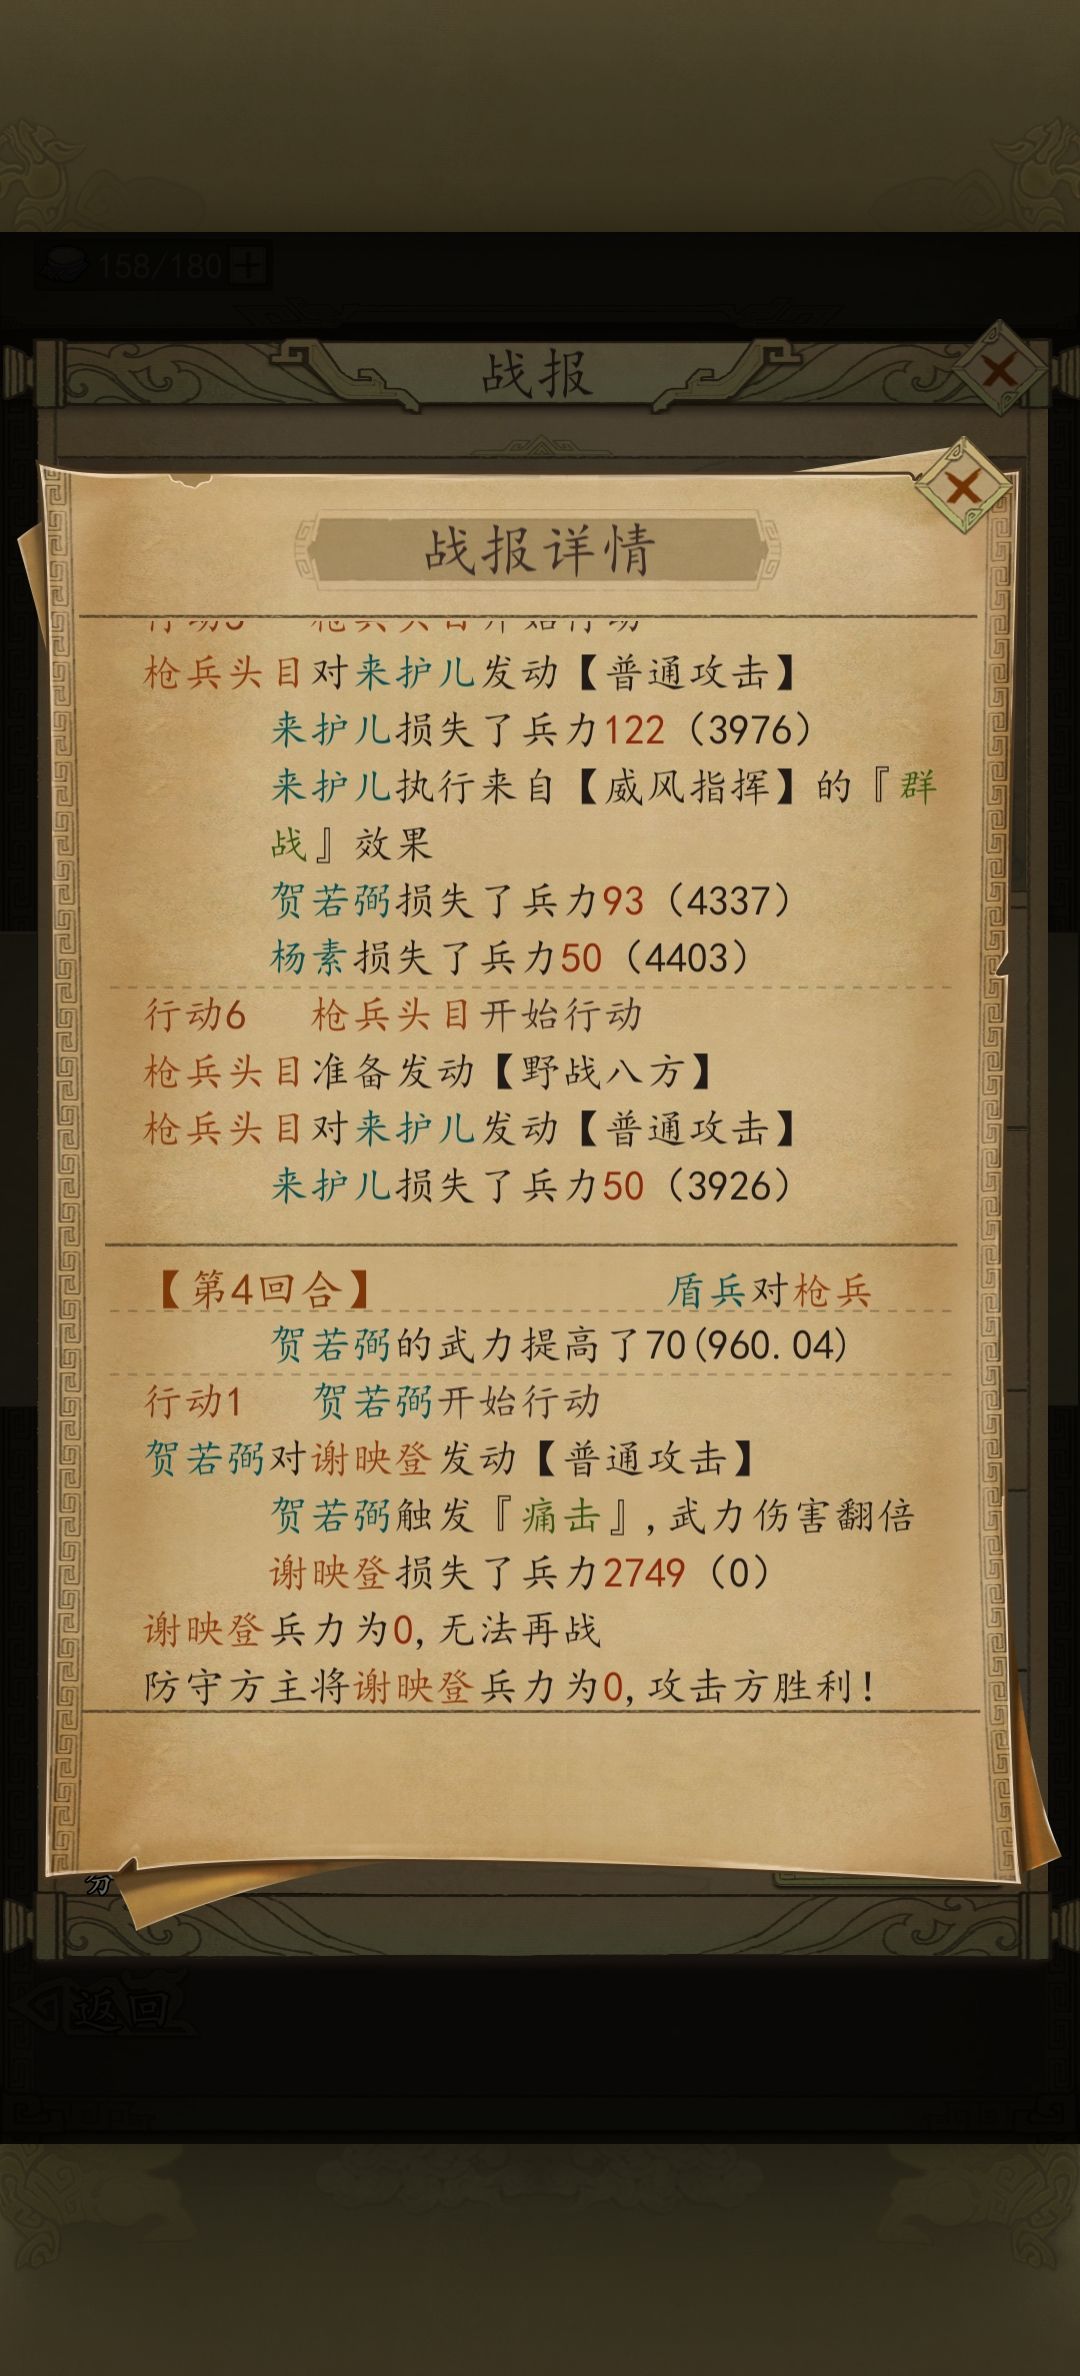 158/180
战报
战报详情
行动5 枪兵头目开始行动
枪兵头目对来护儿发动【普通攻击】
来护儿损失了兵力122（3976）
来护儿执行来自【威风指挥】的『群
战』效果
贺若弼损失了兵力93（4337）
杨素损失了兵力50（4403）
行动6 枪兵头目开始行动
枪兵头目准备发动【野战八方】
枪兵头目对来护儿发动【普通攻击】
来护儿损失了兵力50（3926）
【第4回合】 盾兵对枪兵
贺若弼的武力提高了70(960.04)
行动1 贺若弼开始行动
贺若弼对谢映登发动【普通攻击】
贺若弼触发『痛击』,武力伤害翻倍
谢映登损失了兵力2749（0）
谢映登兵力为0,无法再战
防守方主将谢映登兵力为0,攻击方胜利!
返回